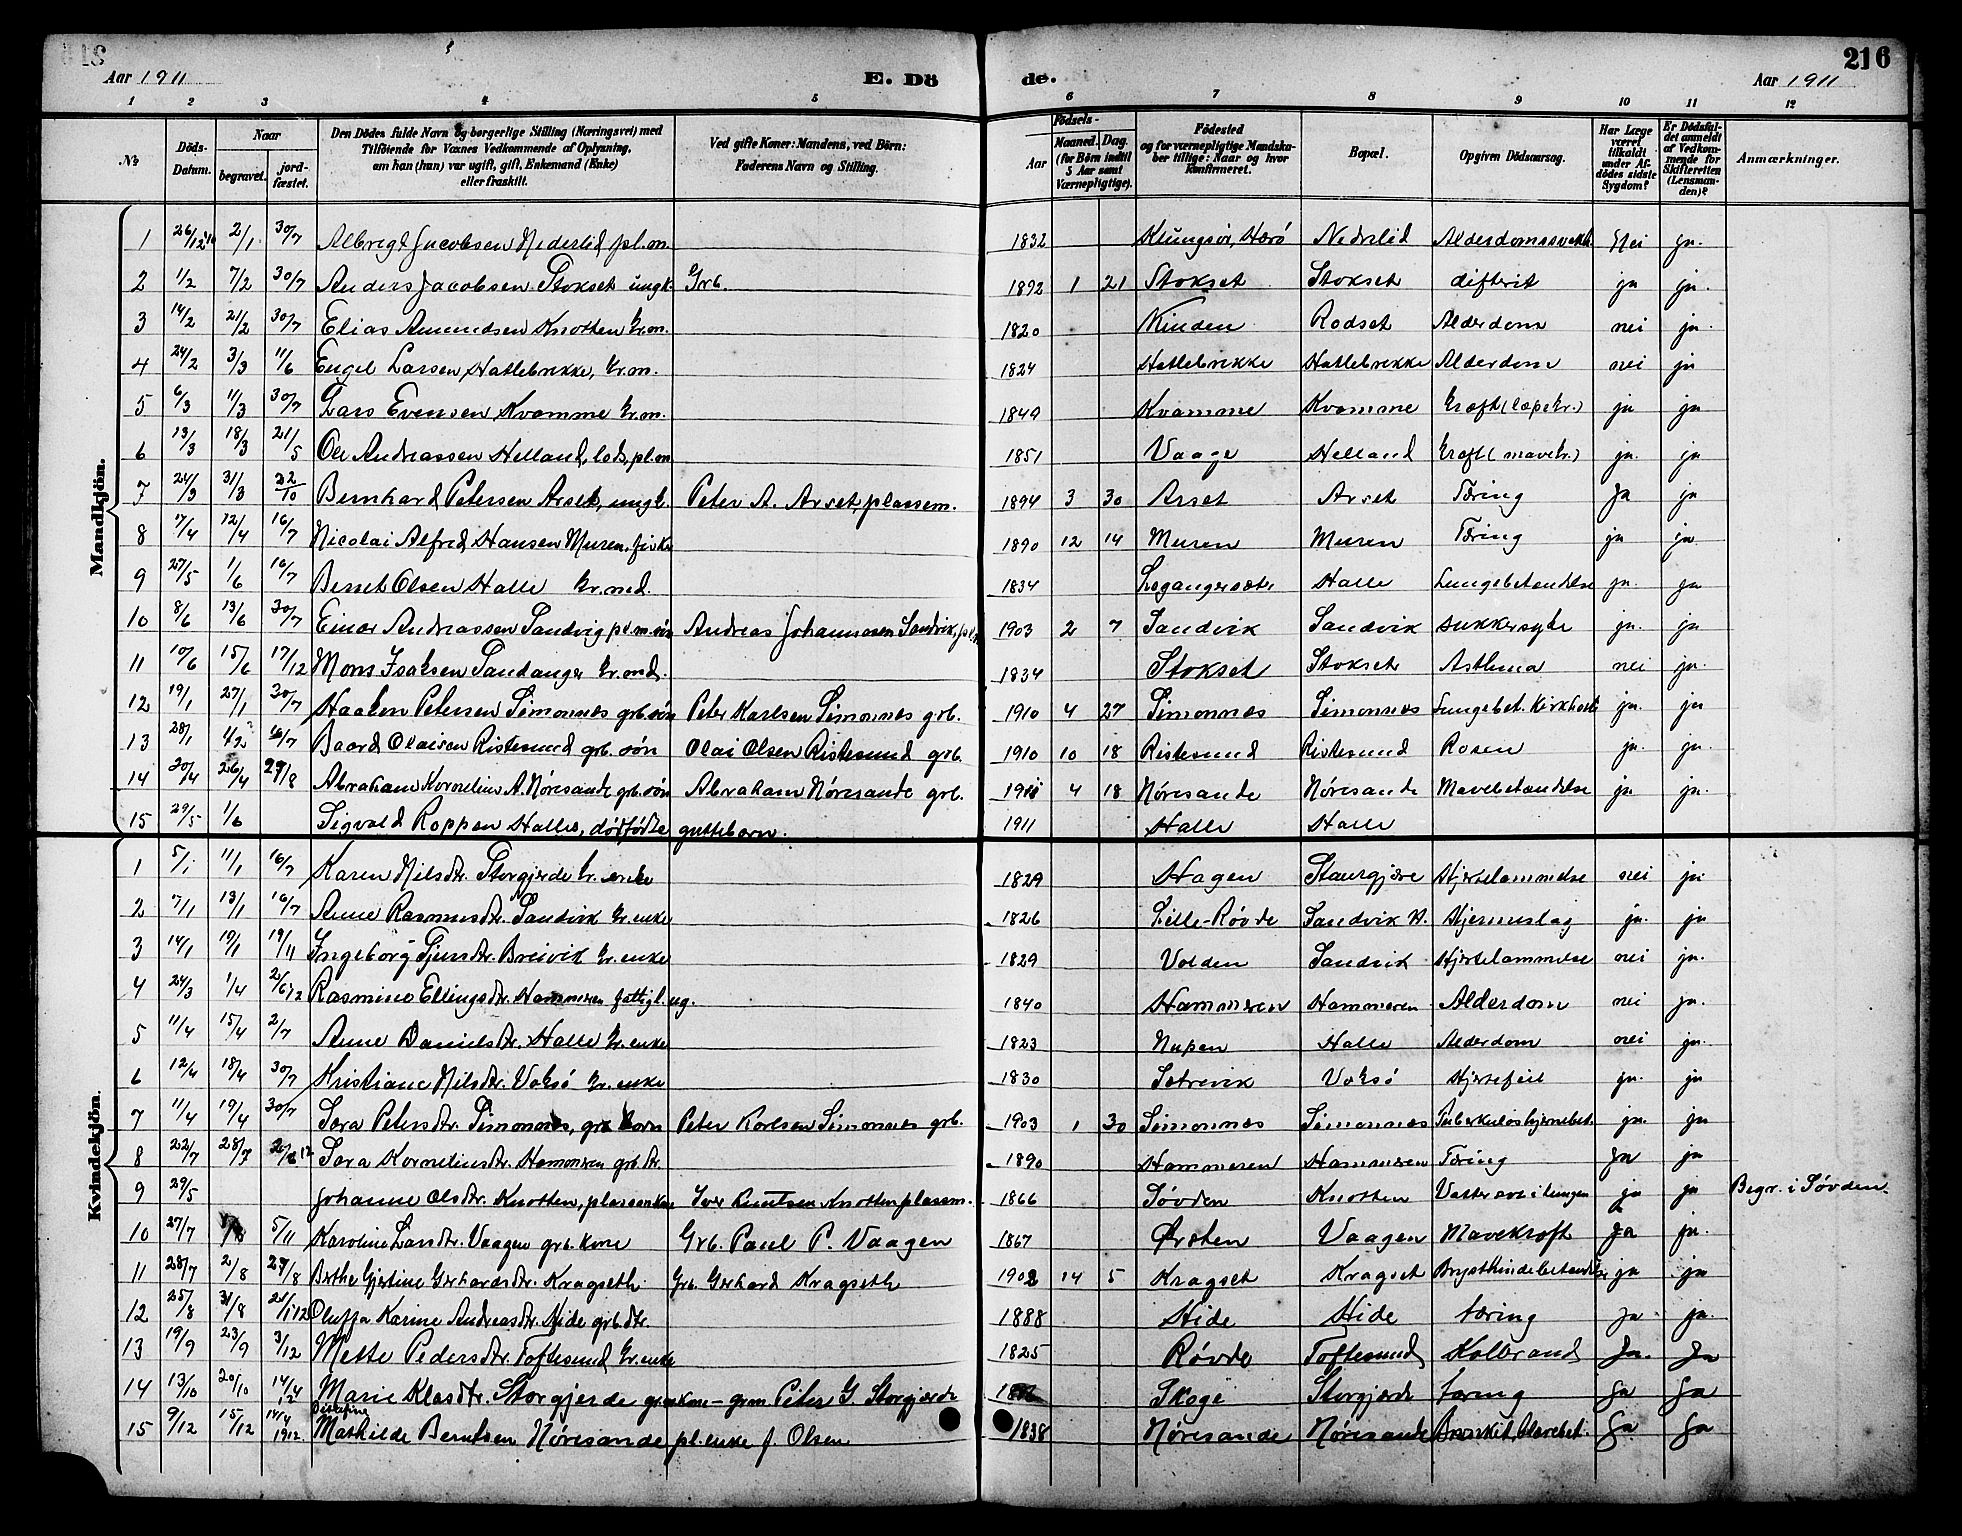 Aar 1911 E. Dö de. 216 Aar 1911
1 2 3 4 5 6 7 8 9 10 11 12
No Döds-Datum. Naar begravet. jord-fæstet. Den Dödes fulde Navn og borgerlige Stilling (Næringsvei) med Tilföiende for Voxnes Vedkommende af Oplysning, om han (hun) var ugift, gift, Enkemand (Enke) eller fraskilt. Ved gifte Koner: Mandens, ved Börn: Faderens Navn og Stilling. Födsels- Aar Maaned. Dag. (for Börn indtil 5 Aar samt Værnepligtige). Födested og for værnepligtige Mandskaber tillige: Naar og hvor konfirmeret. Bopæl. Opgiven Dödsaarsag. Har Læge været tilkaldt under Afdödes sidste Sygdom? Er Dödsfaldet anmeldt af Vedkommende for Skifteretten (Lensmanden)? Anmærkninger.
Mandkjön.
1 26/12 10 2/1 30/7 Albregt Jacobsen Nederlid pl.m. 1832 Klungsör, Herö Nedrelid Alderdomssvækk. Nei ja.
2 1/2 7/2 30/7 Anders Jacobsen Stokset ungk. Grb. 1892 1 21 Stokset Stokset difterit ja ja.
3 14/2 21/2 30/7 Elias Amundsen Knotten kr.m. 1820 Kinden Rodset Alderdom nei ja.
4 24/2 3/3 11/6 Engel Larsen Hatlebrekke, kr.m. 1824 Hatlebrekke Hatlebrekke Alderdom nei ja
5 6/3 11/3 30/7 Lars Evensen Kvamme kr.m. 1849 Kvamme Kvamme kræft (læpekr.) ja ja
6 13/3 18/3 21/5 Ole Andreassen Helland, lods, pl.m 1851 Vaage Helland kræft (mavekr.) ja. ja
7 24/3 31/3 22/10 Bernhard Petersen Arset, ungk. Peter A. Arset, plassem. 1894 3 30 Arset Arset Tæring Ja ja
8 7/4 12/4 16/7 Nicolai Alfred Hansen Muren, fisker 1890 12 14 Muren Muren Tæring ja ja
9 27/5 1/6 16/7 Bernt Olsen Halle kr.md. 1834 Halle Lungebetændelse ja. ja
10 8/6 13/6 30/7 Einar Andreassen Sandvig pl.m.sön Andreas Johannesen Sandvik, pl.m 1903 2 7 Sandvik Sandvik sukkersyke ja. ja
11 10/6 15/6 17/12 Mons Isaksen Sandanger kr.md. 1834 Stokset Stokset Asthma nei ja.
12 19/1 27/1 30/7 Haaken Petersen Simonnes grb.sön Peter Karlsen Simonnes grb. 1910 4 27 Simonnes Simonnes Lungebet. Kikhoste ja. ja
13 28/1 4/2 16/7 Baard Olaisen Ristesund grb. sön Olai Olsen Ristesund grb. 1910 10 18 Ristesund Ristesund Rosen ja. ja.
14 20/4 26/4 27/8 Abraham Kornelius A. Nöresande grb.sön Abraham Nöresande grb. 1910 4 18 Nöresande Nöresande Mavebetændelse ja ja.
15 29/5 1/6 Sigvald Roppen Halles, dödfödte guttebarn. 1911 Halle Halle
Kvindekjön.
1 5/1 11/1 16/7 Karen Nilsdtr. Storgjerde kr. enke 1829 Hagen Staurgjære Hjertelammelse nei ja.
2 7/1 13/1 16/7 Anne Rasmusdtr. Sandvik kr.enke 1826 Lille-Røvde Sandvik N. Hjerneslag ja. ja
3 14/1 19/1 19/11 Ingeborg Sjursdtr. Breivik kr.enke 1829 Volden Sandvik Hjertelammelse nei ja.
4 24/3 1/4 2/6 12 Rasmine Ellingsdtr. Hammeren fattigl. ug. 1840 Hammeren Hammeren Alderdom nei ja.
5 11/4 15/4 2/7 Anne Danielsdtr. Halle kr.enke 1823 Nupen Halle Alderdom nei ja.
6 12/4 18/4 30/7 Kristiane Nilsdtr. Voksö kr.enke 1830 Sætrevik Voksö Hjertefeil ja. ja
7 11/4 19/4 30/7 Sara Petersdtr. Simonnes, grb barn Peter Karlsen Simonnes grb. 1903 1 30 Simonnes Simonnes Tuberkuloshjernebet. ja. ja
8 22/7 28/7 2/6 12 Sara Korneliusdtr. Hammeren grb.dtr. 1890 Hammeren Hammeren Tæring Ja ja
9 29/5 Johanne Olsdtr. Knotten, plassenkone Iver Knutsen Knotten plassm. 1866 Søvden Knotten Vattersot i lungen ja ja Begr. i Søvden.
10 27/7 5/11 Karoline Larsdtr. Vaagen grb. kone Grb. Paul P. Vaagen 1867 Ørsten Vaagen Mavekræft Ja ja.
11 28/7 2/8 27/8 Berthe Gjertine Gerhardsdtr. Kragseth. Grb. Gerhard Kragseth 1902 14 5 Kragset Kragset Brysthindebetændelse ja ja
12 25/8 31/8 21/1 12 Oluffa Karine Andreasdtr. Hide grb.dtr. 1888 Hide Hide tæring Ja ja.
13 19/9 23/9 3/12 Mette Pedersdtr. Toftesund kr.enke 1825 Røvde Toftesund Kolbrand Ja. Ja
14 13/10 20/10 14/4 12 Marie Klasdtr. Storgjerde gr.mkone - grm Peter G. Storgjerde Skoge Storgjerde tæring Ja Ja
15 9/12 15/12 14/4 1912 Mathilde Berntsen Nöresande pl.enke f. Olsen 1838 Nöresande Nöresande Ja Ja